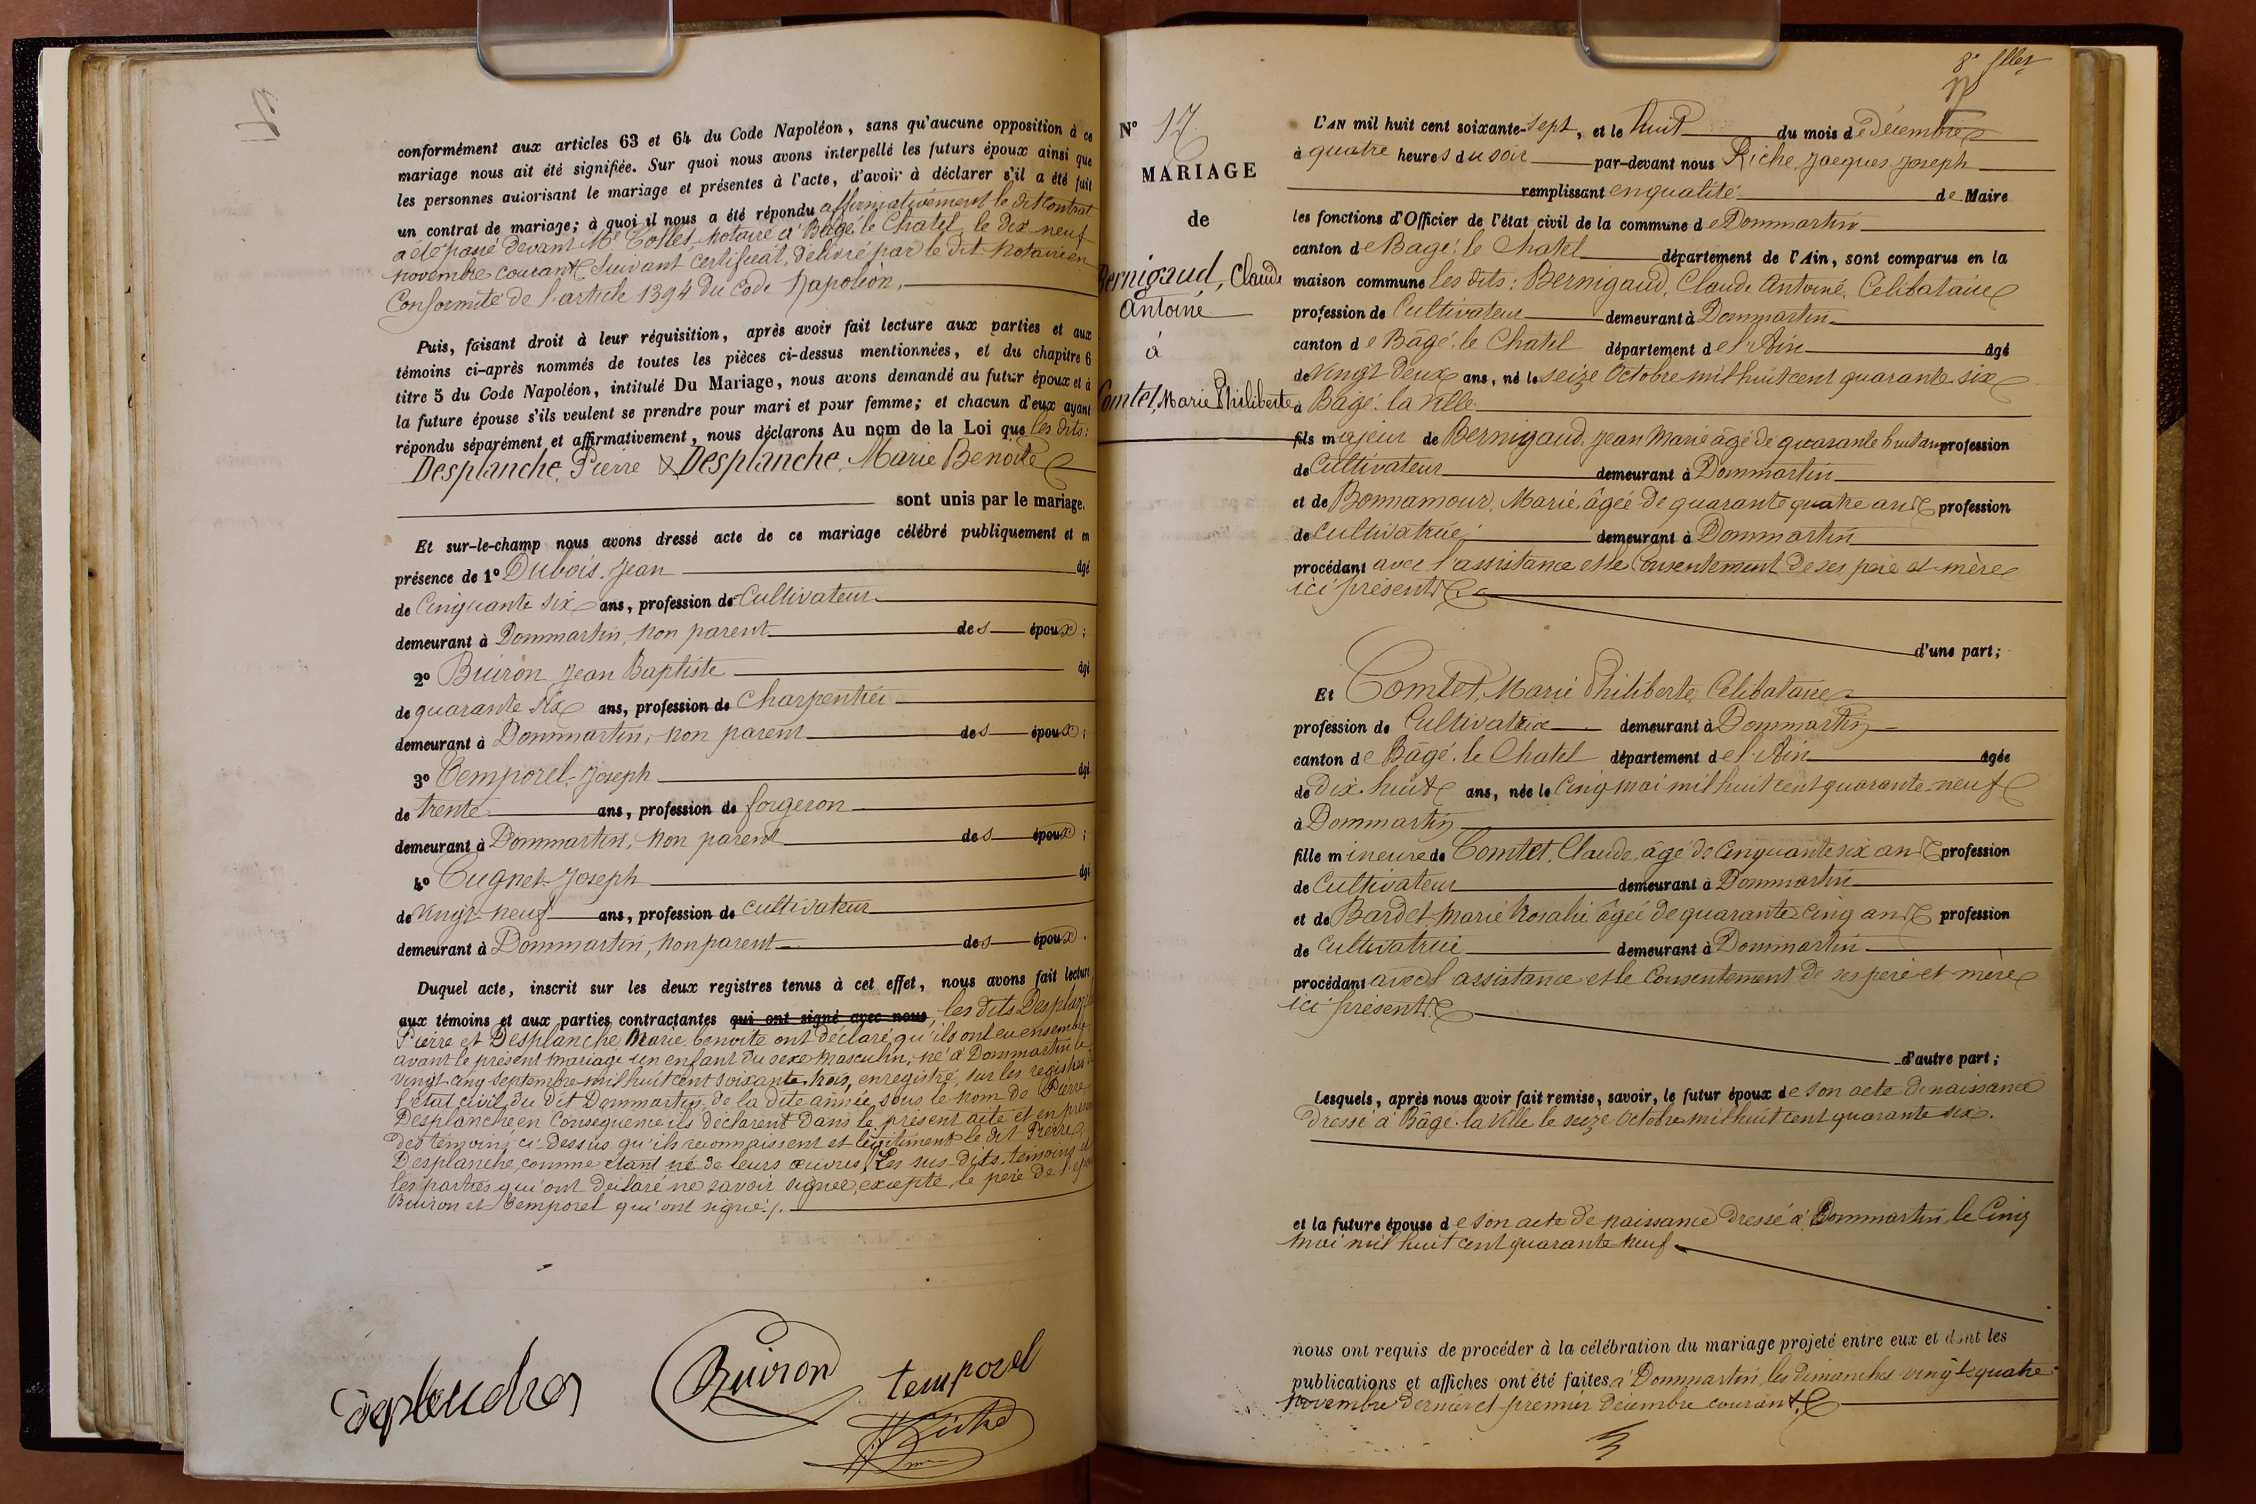 conformément aux articles 63 et 64 du Code Napoléon, sans qu'aucune opposition à ce
mariage nous ait été signifiée. Sur quoi nous avons interpellé les futurs époux ainsi que
les personnes autorisant le mariage et présentes à l'acte, d'avoir à déclarer s'il a été fait
un contrat de mariage; à quoi il nous a été répondu affirmativement le dit contrat
a été passé devant Me notaire à Bâgé le Chatel le dix neuf
novembre courant suivant certificat, délivré par le dit notaire en
Conformité de l'article 1394 du Code Napoléon.
Puis, faisant droit à leur réquisition, après avoir fait lecture aux parties et aux
témoins ci-après nommés de toutes les pièces ci-dessus mentionnées, et du chapitre 6
titre 5 du Code Napoléon, intitulé Du Mariage, nous avons demandé au futur époux et à
la future épouse s'ils veulent se prendre pour mari et pour femme; et chacun d'eux ayant
répondu séparément et affirmativement, nous déclarons Au nom de la Loi que les dits:
Desplanche, Pierre & Desplanche, Marie Benoite
sont unis par le mariage.
Et sur-le-champ nous avons dressé acte de ce mariage célébré publiquement et en
présence de 1° Dubois, Jean âgé
de Cinquante six ans, profession de Cultivateur
demeurant à Dommartin, non parent des époux;
2° Buiron Jean Baptiste âgé
de quarante six ans, profession de Charpentier
demeurant à Dommartin, non parent des époux;
3° Temporel, Joseph âgé
de trente ans, profession de forgeron
demeurant à Dommartin, non parent des époux;
4° Cugnet Joseph âgé
de vingt-neuf ans, profession de cultivateur
demeurant à Dommartin, non parent des époux.
Duquel acte, inscrit sur les deux registres tenus à cet effet, nous avons fait lecture
aux témoins et aux parties contractantes qui ont signé avec nous, les dits Desplanche
Pierre et Desplanche Marie benoite ont déclaré qu'ils ont eu ensemble
avant le présent mariage un enfant du sexe masculin, né à Dommartin le
vingt cinq septembre mil huit cent soixante trois, enregistré, sur les registres
l'état civil du dit Dommartin de la dite année, sous le nom de Pierre
Desplanche en conséquence ils déclarent dans le présent acte et en
des témoins ci-dessus qu'ils reconnaissent et légitiment le dit Pierre
Desplanche, comme étant né de leurs œuvres. Les sus-dits témoins et
les parties qui ont déclaré ne savoir signer, excepté le père de
Buiron et Temporel qui ont signé.
Buiron
temporel
Riche
8e
N° 17
MARIAGE
de
Bernigaud, Claude
Antoine
à
Comtet, Marie Philiberte
L'AN mil huit cent soixante-sept, et le huit du mois de Décembre
à quatre heures du soir par-devant nous Riche, Jacques Joseph
remplissant en qualité de Maire
les fonctions d'Officier de l'état civil de la commune de Dommartin
canton de Bâgé le Chatel département de l'Ain, sont comparus en la
maison commune les dits: Bernigaud, Claude Antoine, Célibataire
profession de Cultivateur demeurant à Dommartin
canton de Bâgé le Chatel département de l'Ain âgé
de vingt deux ans, né le seize Octobre mil huit cent quarante six
à Bâgé la Ville
fils majeur de Bernigaud, Jean Marie âgé de quarante huit ans profession
de Cultivateur demeurant à Dommartin
et de Bonnamour, Marie, âgée de quarante quatre ans profession
de Cultivatrice demeurant à Dommartin
procédant avec l'assistance et le Consentement de ses père et mère
ici présents
d'une part;
Et Comtet, Marie Philiberte, Célibataire
profession de Cultivatrice demeurant à Dommartin
canton de Bâgé le Chatel département de l'Ain âgée
de dix-huit ans, née le Cinq mai mil huit cent quarante-neuf
à Dommartin
fille mineure de Comtet, Claude, âgé de Cinquante six ans profession
de Cultivateur demeurant à Dommartin
et de Bardet Marie Rosalie âgée de quarante cinq ans profession
de Cultivatrice demeurant à Dommartin
procédant avec l'assistance et le Consentement de ses père et mère
ici présents
d'autre part;
Lesquels, après nous avoir fait remise, savoir, le futur époux de son acte de naissance
dressé à Bâgé la Ville le seize Octobre mil huit cent quarante six.
et la future épouse de son acte de naissance dressé à Dommartin, le Cinq
mai mil huit cent quarante neuf
nous ont requis de procéder à la célébration du mariage projeté entre eux et dont les
publications et affiches ont été faites à Dommartin, les dimanches vingt quatre
Novembre dernier et premier décembre courant.